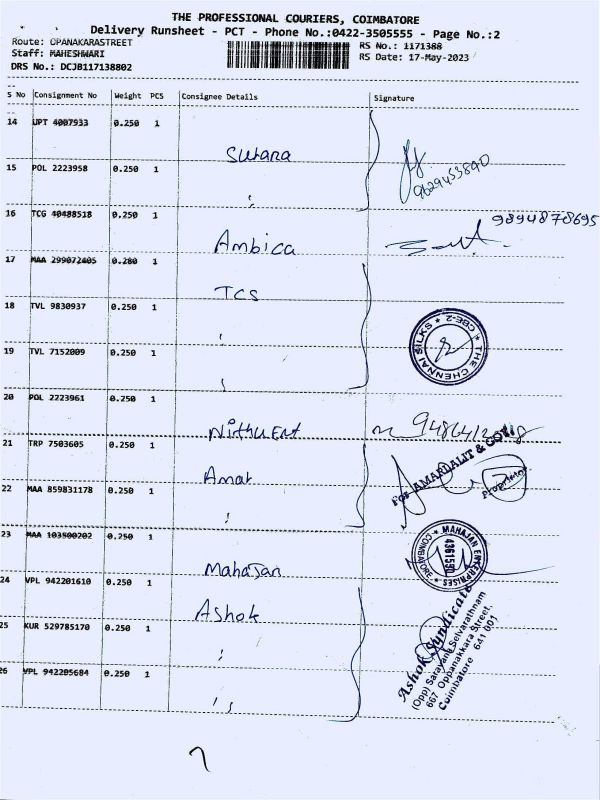 THE PROFESSIONAL COURIERS, COIMBATORE
Delivery Runsheet - PCT - Phone No.:0422-3505555 - Page No.:2
Route: OPANAKARASTREET RS No.: 1171388
Staff: MAHESHWARI RS Date: 17-May-2023
DRS No.: DCJB117138802
S No Consignment No Weight PCS Consignee Details Signature
14 UPT 4007933 0.250 1 Sutara
15 POL 2223958 0.250 1 " 9629453840
16 TCG 40488518 0.250 1 Ambica 9894878695
17 MAA 299072405 0.280 1 TCS
18 TVL 9830937 0.250 1 " THE CHENNAI SILKS * CBE-2 *
19 TVL 7152009 0.250 1 "
20 POL 2223961 0.250 1
21 TRP 7503605 0.250 1 Amar For AMARDALIT & CO
22 MAA 859831178 0.250 1 " Proprietor
23 MAA 103500202 0.250 1 Mahajan * MAHAJAN ENTERPRISES * COIMBATORE
24 VPL 942201610 0.250 1 Ashok Ashok Syndicate
25 KUR 529785170 0.250 1 " (Opp) Sarayana Selvarathnam
26 VPL 942205684 0.250 1 " 667, Oppanakkara Street,
Coimbatore 641 001